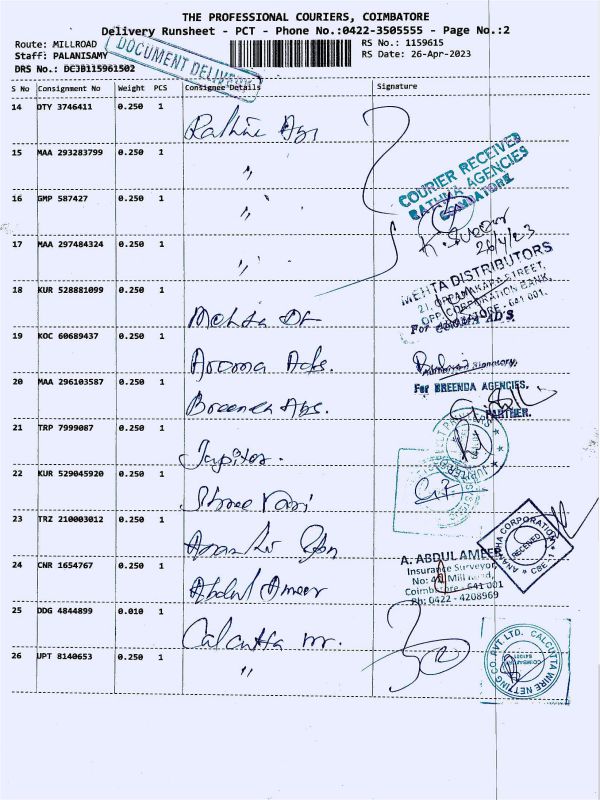 THE PROFESSIONAL COURIERS, COIMBATORE
Delivery Runsheet - PCT - Phone No.:0422-3505555 - Page No.:2
Route: MILLROAD
RS No.: 1159615
Staff: PALANISAMY
RS Date: 26-Apr-2023
DRS No.: DCJB115961502
DOCUMENT DELIVERY
S No Consignment No Weight PCS Consignee Details Signature
14 DTY 3746411 0.250 1
15 MAA 293283799 0.250 1 "
COURIER RECEIVED
AGENCIES
COIMBATORE
16 GMP 587427 0.250 1 "
26/4/23
17 MAA 297484324 0.250 1 "
MEHTA DISTRIBUTORS
21, OPPANAKARA STREET,
OPP. CORPORATION BANK,
COIMBATORE - 641 001.
18 KUR 528881099 0.250 1 Mehta
For
AD'S
19 KOC 60689437 0.250 1 Aroma Ads.
Authorised Signatory,
20 MAA 296103587 0.250 1 Breenda Ags.
For BREENDA AGENCIES,
PARTNER.
21 TRP 7999087 0.250 1 Jupiter.
22 KUR 529045920 0.250 1 Shree
23 TRZ 210003012 0.250 1
ANANTHA CORPORATION
RECEIVED
CBE - 1
24 CNR 1654767 0.250 1 Abdul Ameer
A. ABDUL AMEER
Insurance Surveyor,
Mill Road,
Coimbatore - 641 001
Ph: 0422 - 4208969
25 DDG 4844899 0.010 1 Calcutta
26 UPT 8140653 0.250 1 "
CALCUTTA WIRE NETTING CO. PVT. LTD.